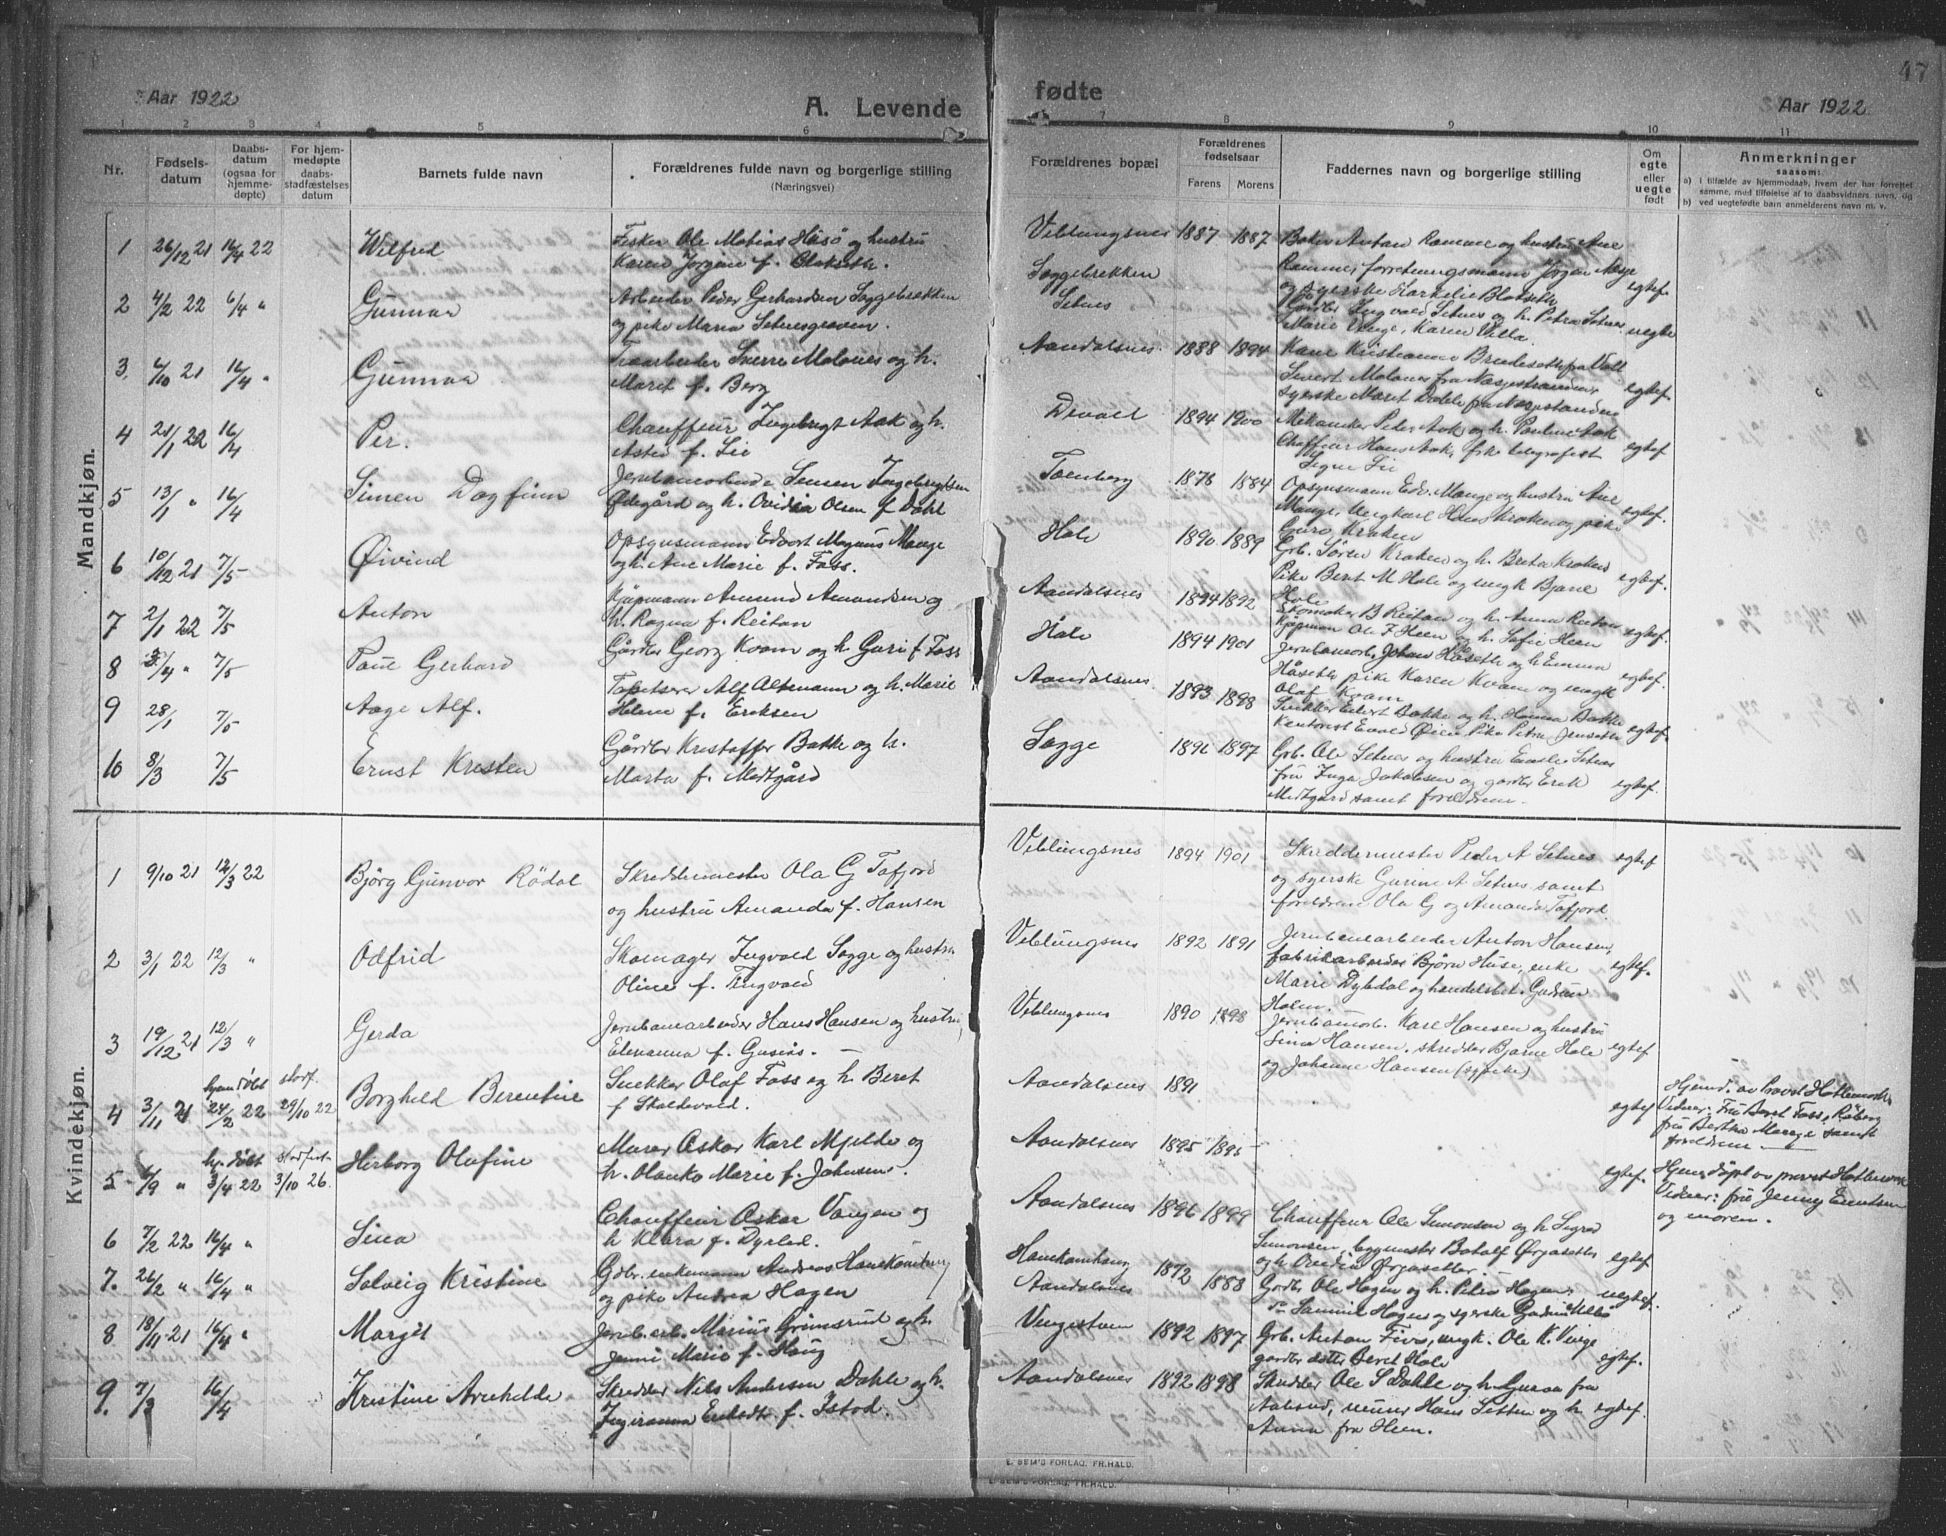 47
Aar 1922
A. Levende
fødte
Aar 1922
1 2 3 4 5 6 7 8 9 10 11
Nr.
Fødselsdatum
Daabsdatum (ogsaa for hjemmedøpte)
For hjemmedøpte daabsstadfæstelses datum
Barnets fulde navn
Forældrenes fulde navn og borgerlige stilling
(Næringsvei)
Forældrenes bopæl
Forældrenes fødselsaar
Farens Morens
Faddernes navn og borgerlige stilling
Om egte eller uegte født
Anmerkninger
saasom:
a) I tilfælde av hjemmedaab, hvem der har forrettet samme, med tilføielse af to daabsvidners navn, og
b) ved uegtefødte barn anmelderens navn m. v.
Mandkjøn.
1 26/12 21 16/4 22 Wilfred
Fisker Ole Matias Husø og hustru
Karen Jørgine f.
Veblungsnes 1887 1887
Baker Anton Ramme og hustru Ane
Ramme, forretningsmann Jørgen
og syerske
egtef.
2 4/2 22 6/4 " Gunnar
Arbeider Peder Gerhardsen Soggebrekken
og pike Maria Setnesgraven.
Soggebrekken
Setnes
Ingvald Setnes og h. Petra Setnes
Marie Venge, Karen Villa.
uegte
3. 6/10 21 16/4 " Gunnar
Sverre Malones og h.
Marit f. Berg
Aandalsnes 1888 1894
Kristianne fra Voll
Sivert Malones fra
Syerske Marit Dahle fra
egtef.
4 21/1 22 16/4 Per.
Chauffeur Ingebregt Aak og h.
Asted f. Lie
Devold 1894 1900
Mekaniker Peder Aak og h. Pauline Aak
Chaffeur Hans Aak, pike telegrafist
Signe Lie
egtef
5 13/1 " 16/4 Simen Dagfinn
Ødegård og h. Ovidia Olsen f Dahl
1878 1884
Opsynsmann Edv. Mange og hustru Ane
Mange, Ungkarl Hans Kroken og pike
Guro Kroken
egtef.
6 10/12 21 7/5 Øivind
Opsynsmann Edvart Magnus Mange
og h. Ane Marie f. Foss.
Hole 1890 1889
Grb. Søren Kroken og h. Berta Kroken
Pike Beret M Hole og ungk Bjarne
Hole
egtef.
7 2/1 22 7/5 Anton
Kjøpmann Amund Amundsen og
h. Ragna f. Reitan
Aandalsnes 1894 1892
Skomaker B Reitan og h. Anna Reitan
Kjøpman Ole F Heen og h. Sofie Heen
egtef.
8 /4 " 7/5 Paul Gerhard
Gårdbr Georg Kvam og h Guri f Foss
Hole 1894 1901
Jernbanearb. Johan Håseth og h Emma
Håseth, pike Karen Kvam og ungk
Olaf Kvam
egtef.
9 28/1 7/5 Aage Alf.
Tapetserer Alf Altmann og h. Marie
Helene f. Eriksen
Aandalsnes. 1893 1898
Snekker Edvert Bakke og h. Hanna Bakke
Kontorist Øien Pike Petra Jenseth
egtef.
10 8/3 7/5 Ernst Kristen
Gårdbr Kristoffer Bakke og h.
Marta f. Medtgård
Sogge 1891 1897
Grb. Ole Setnes og hustru Emilie Setnes
fru Inga Jakobsen og gardbr Erik
Medtgard samt foreldrene.
egtef.
Kvindekjøn.
1 9/10 21 12/3 22 Bjørg Gunvor Rödal
Skreddermester Ola G Tafjord
og hustru Amanda f. Hansen
Veblungsnes 1894 1901
Skreddermester Peder A Setnes
og syerske Gurine A Setnes samt
foreldrene Ola G og Amanda Tafjord.
egtef
2 3/1 22 12/3 " Odfrid
Skomager Ingvald Sogge og hustru
Oline f. Tingvold
Veblungsnes 1892 1891
Jernbanearbeider Anton Hansen,
fabrikarbeider Bjørn Huse, enke
Marie Dybdal og handelsbet. Gudrun
Holm.
egtef.
3 19/12 21 12/3 " Gerda
Jernbanearbeider Hans Hansen og hustru
Elevanna f. Gusiås.
Veblungsnes 1890 1898
Jernbanearb. Karl Hansen og hustru
Lina Hansen, skredder Bjarne Hole
og Johanne Hansen (sypike)
egtef
4 3/11 21 hjemdöbt 24/2 22 stadf. 29/10 22 Borghild Berentine
Snekker Olaf Foss og h Beret
f Skoldevold.
Aandalsnes 1891
egtef
Hjemd. av Provst Hattemark
Vidner: Fru Beret Foss,
fru Bertha Mange samt
foreldrene
5 6/9 " hj. döbt 3/4 22 stadfest 3/10 26. Herborg Olafine
Murer Oskar Karl Mjelde og
h. Olanka Marie f. Johnsen.
Aandalsnes 1895 1895
egtef.
Hjemdöpt av provst Hattemark
Vidner: fru Jenny Knutsen
og moren.
6 7/2 22 16/4 " Lina
Chauffeur Oskar Vangen og
h Klara f. Dyrlid.
Aandalsnes 1896 1899
Chauffeur Ole Simonsen og h Sigrid
Simonsen, byggmester Botolf Ørjasetter
og h Ørjasetter.
egtef
7. 26/2 " 16/4 " Solveig Kristine
Gdbr. enkemann Andreas Hanekamhaug
og pike Andrea Hagen
Hanekamhaug
Aandalsnes
1872 1888
Gardbr Ole Hagen og h. Petra Hagen
Samuel Hagen og syerske
uegtef.
8 18/11 21 16/4 " Margit
Jernb.arb. Marius Grimsrud og h.
Jenni Marie f. Haug
Vengestuen 1892 1897
Grb. Anton Fiva, ungk. Ole K. Venge
gardbr datter Beret Hole
egtef.
9. 7/3 16/4 Kristine Arehilde
Skredder Nils Andersen Dahle og h.
Ingeranna f. Istad.
Aandalsnes 1892 1898
Skredder Ole S Dahle og h Guraa fra
Aalesund, murer Hans Setten og h
Anna fra Heen.
egtef.
E. SEM'S FORLAG, FR.HALD.
E. SEM'S FORLAG, FR.HALD.